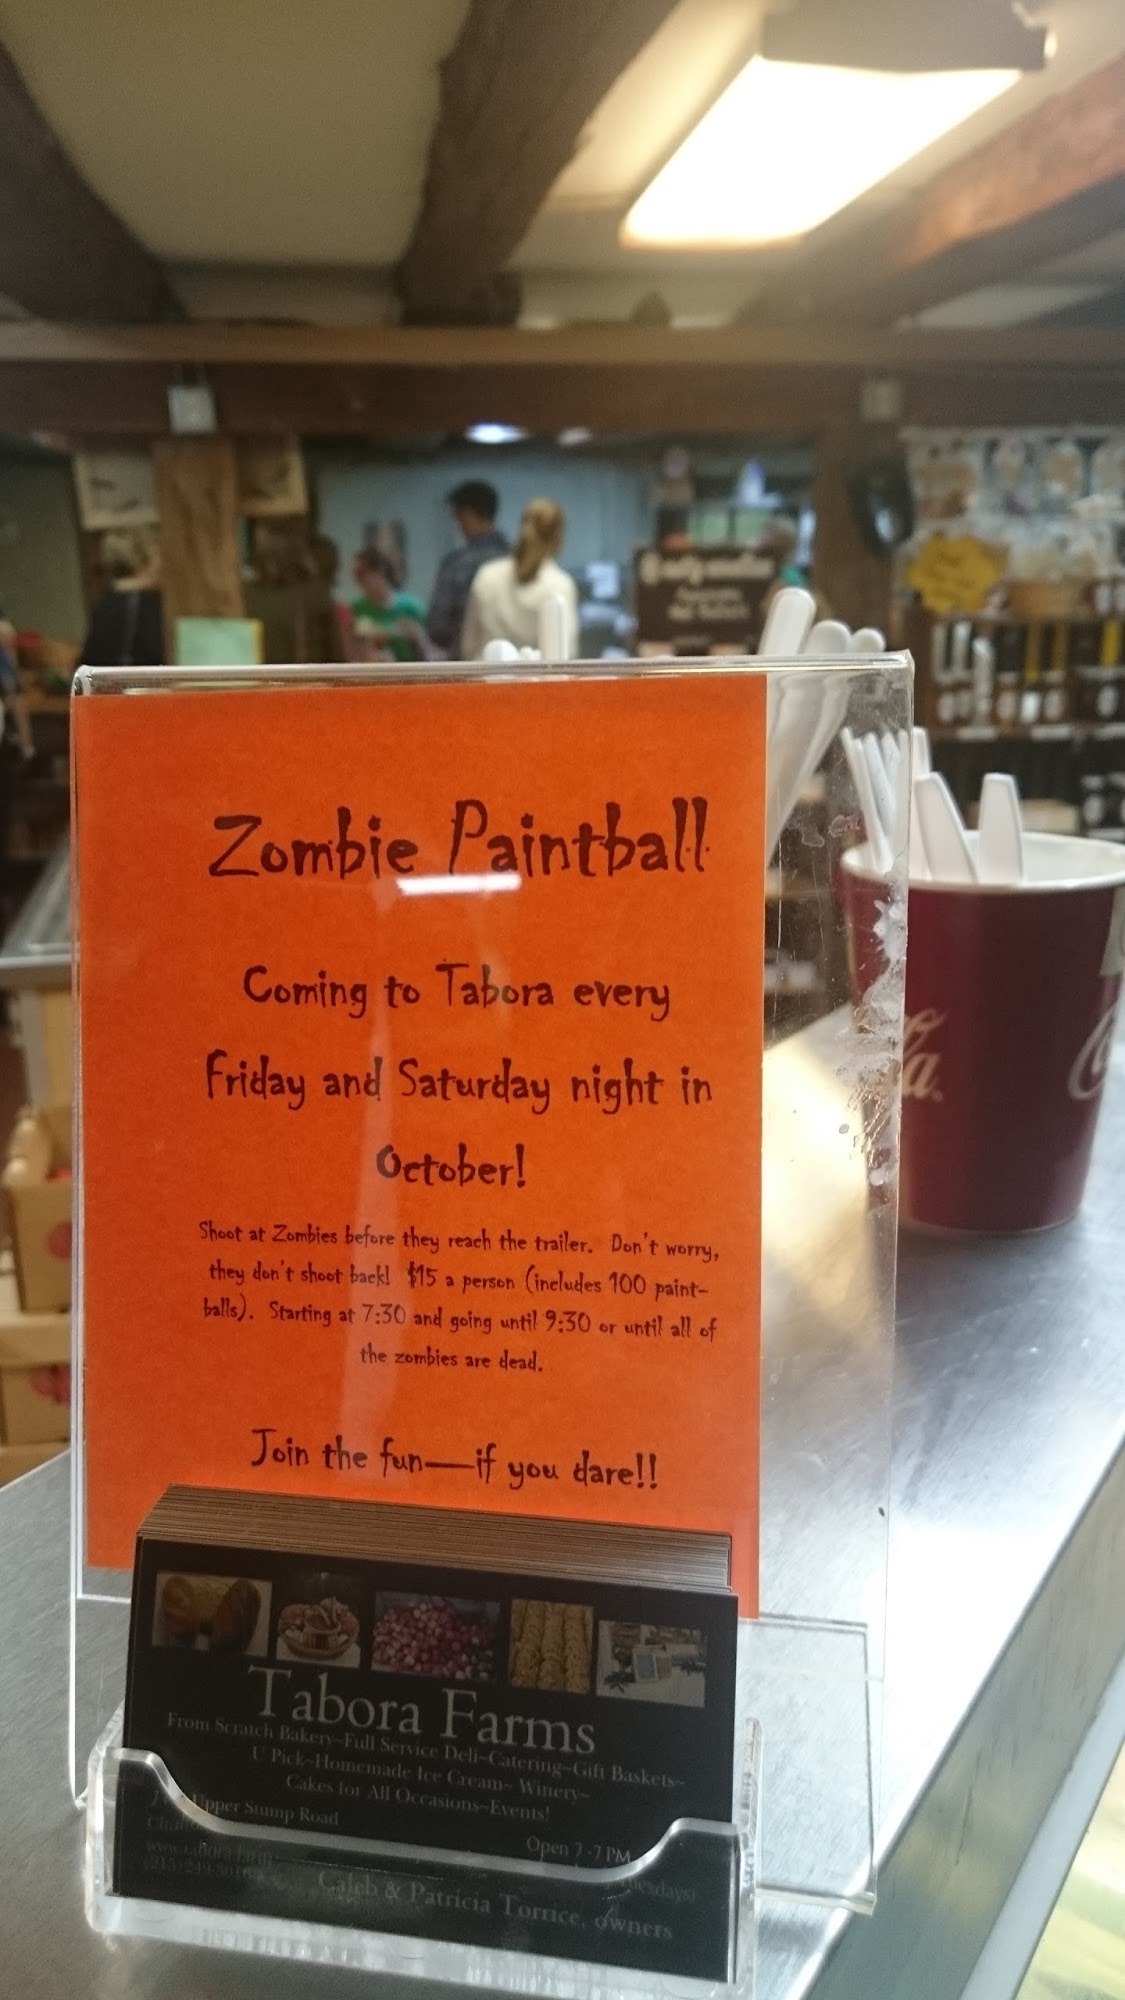 Zombie Paintball
Coming to Tabora every
Friday and Saturday night in
October!
Shoot at Zombies before they reach the trailer. Don't worry,
they don't shoot back! $15 a person (includes 100 paint-
balls). Starting at 7:30 and going until 9:30 or until all of
the zombies are dead.
Join the fun—if you dare!!
Tabora Farms
From Scratch Bakery~Full Service Deli~Catering~Gift Baskets~
U Pick~Homemade Ice Cream~ Winery~
Cakes for All Occasions~Events!
Upper Stump Road
Open 7 -7 PM
Caleb & Patricia Torrice, owners